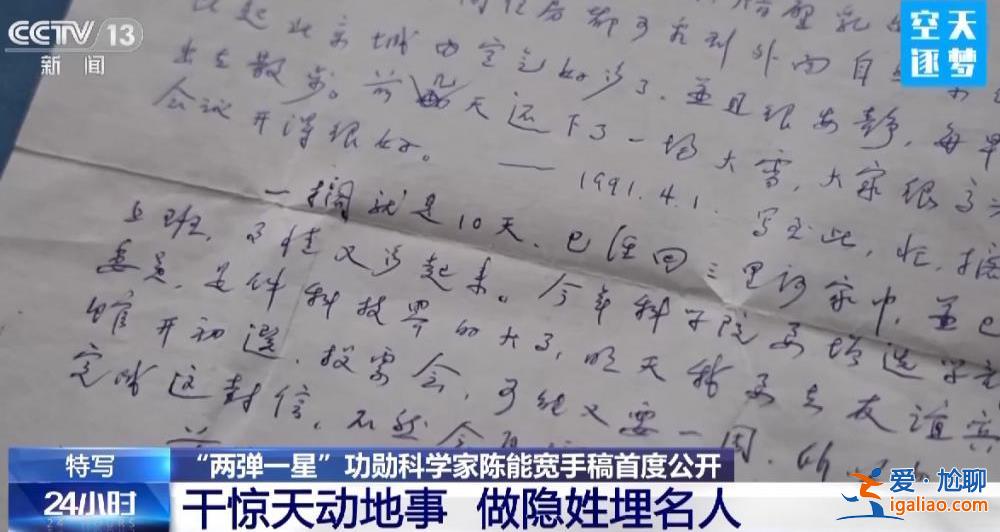 CCTV 13
新闻
空天
逐梦
比起北京城内空气好多了，並且很安静，每早
出去散步。前几天还下了一场大雪，大家很高兴
会议开得很好。
—— 1991.4.1. 写至此，忙，搁
一搁就是10天，已经回三里河家中，並已
上班，事情又多起来。今年科学院要增选学部
委员，是件科技界的大事，明天我要去友谊宾
馆开初选，投票会，可能又要一周，所以
完成这封信，不然会
特写
“两弹一星”功勋科学家陈能宽手稿首度公开
24小时
干惊天动地事 做隐姓埋名人
爱·尬聊
igaliao.com